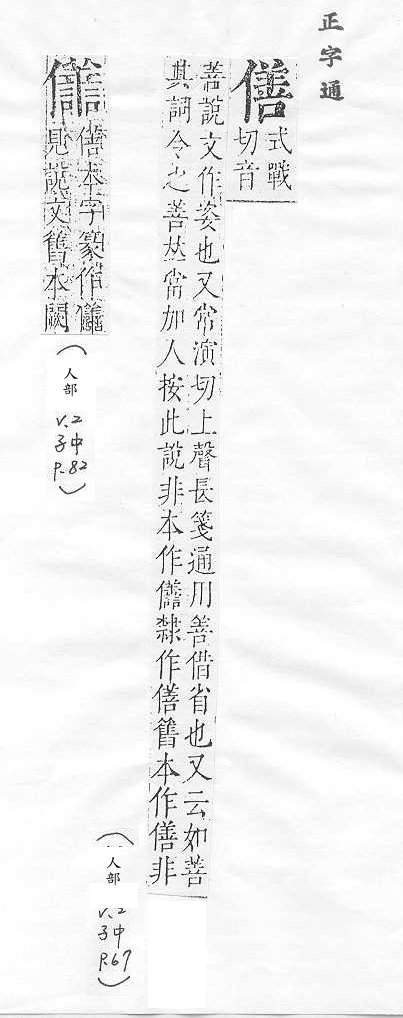 正字通
僐
式戰
切音
善說文作姿也又常演切上聲長箋通用善借省也又云如善
其詞令之善𠀤當加人按此說非本作𠏉隸作僐舊本作僐非
(人部
V.2
子中
P.67)
𠏉
僐本字篆作
見說文舊本闕
(人部
V.2
子中
P.82)